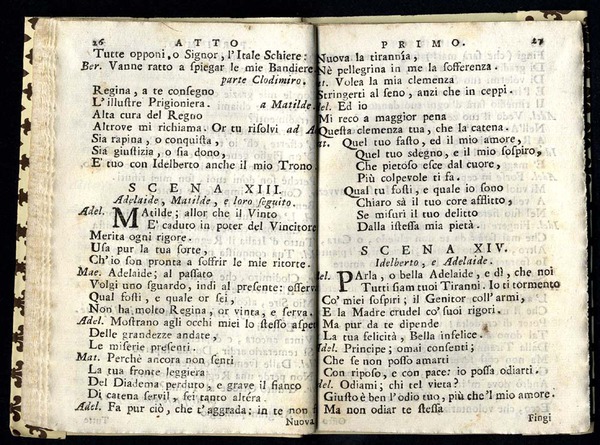 26 ATTO
Tutte opponi, o Signor, l'Itale Schiere:
Ber. Vanne ratto a spiegar le mie Bandiere
parte Clodimiro.
Regina, a te consegno
L'illustre Prigioniera. a Matilde.
Alta cura del Regno
Altrove mi richiama. Or tu risolvi ad A
Sia rapina, o conquista,
Sia giustizia, o sia dono,
E' tuo con Idelberto anche il mio Trono
SCENA XIII.
Adelaide, Matilde, e loro seguito.
Adel. MAtilde; allor che il Vinto
E' caduto in poter del Vincitore
Merita ogni rigore.
Usa pur la tua sorte,
Ch'io son pronta a soffrir le mie ritorte.
Mat. Adelaide; al passato
Volgi uno sguardo, indi al presente: osserva
Qual fosti, e quale or sei,
Non ha molto Regina, or vinta, e serva.
Adel. Mostrano agli occhi miei lo stesso aspet
Delle grandezze andate,
Le miserie presenti.
Mat. Perchè ancora non senti
La tua fronte leggiera
Del Diadema perduto, e grave il fianco
Di catena servil, sei tanto altéra.
Adel. Fa pur ciò, che t'aggrada; in te non
Nuova
PRIMO. 27
Nuova la tirannía,
Nè pellegrina in me la sofferenza.
at. Volea la mia clemenza
Stringerti al seno, anzi che in ceppi.
del. Ed io
Mi reco a maggior pena
Questa clemenza tua, che la catena.
at. Quel tuo fasto, ed il mio amore,
Quel tuo sdegno, e il mio sospiro,
Che pietoso esce dal cuore,
Più colpevole ti fa.
Qual tu fosti, e quale io sono
Chiaro sà il tuo core afflitto,
Se misuri il tuo delitto
Dalla istessa mia pietà.
SCENA XIV.
Idelberto, e Adelaide.
del. PArla, o bella Adelaide, e dì, che noi
Tutti siam tuoi Tiranni. Io ti tormento
Co' miei sospiri; il Genitor coll'armi,
E la Madre crudel co' suoi rigori.
Ma pur da te dipende
La tua felicità, Bella infelice.
del. Principe; omai consenti;
Che se non posso amarti
Con riposo, e con pace: io possa odiarti.
del. Odiami; chi tel vieta?
Giusto è ben l'odio tuo, più che'l mio amore.
Ma non odiar te stessa
Fingi